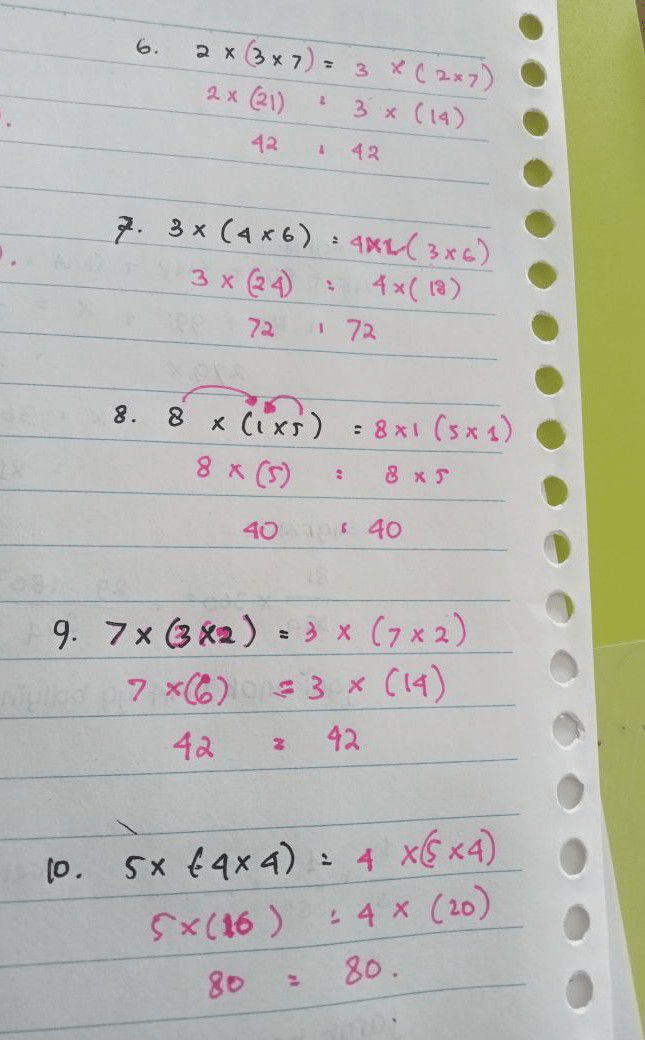 6. 2 × (3 × 7) = 3 × (2 × 7)
2 × (21) = 3 × (14)
42 = 42
7. 3 × (4 × 6) = 4 × (3 × 6)
3 × (24) = 4 × (18)
72 = 72
8. 8 × (1 × 5) = 8 × 1 (5 × 1)
8 × (5) = 8 × 5
40 = 40
9. 7 × (3 × 2) = 3 × (7 × 2)
7 × (6) = 3 × (14)
42 = 42
10. 5 × (4 × 4) = 4 × (5 × 4)
5 × (16) = 4 × (20)
80 = 80.